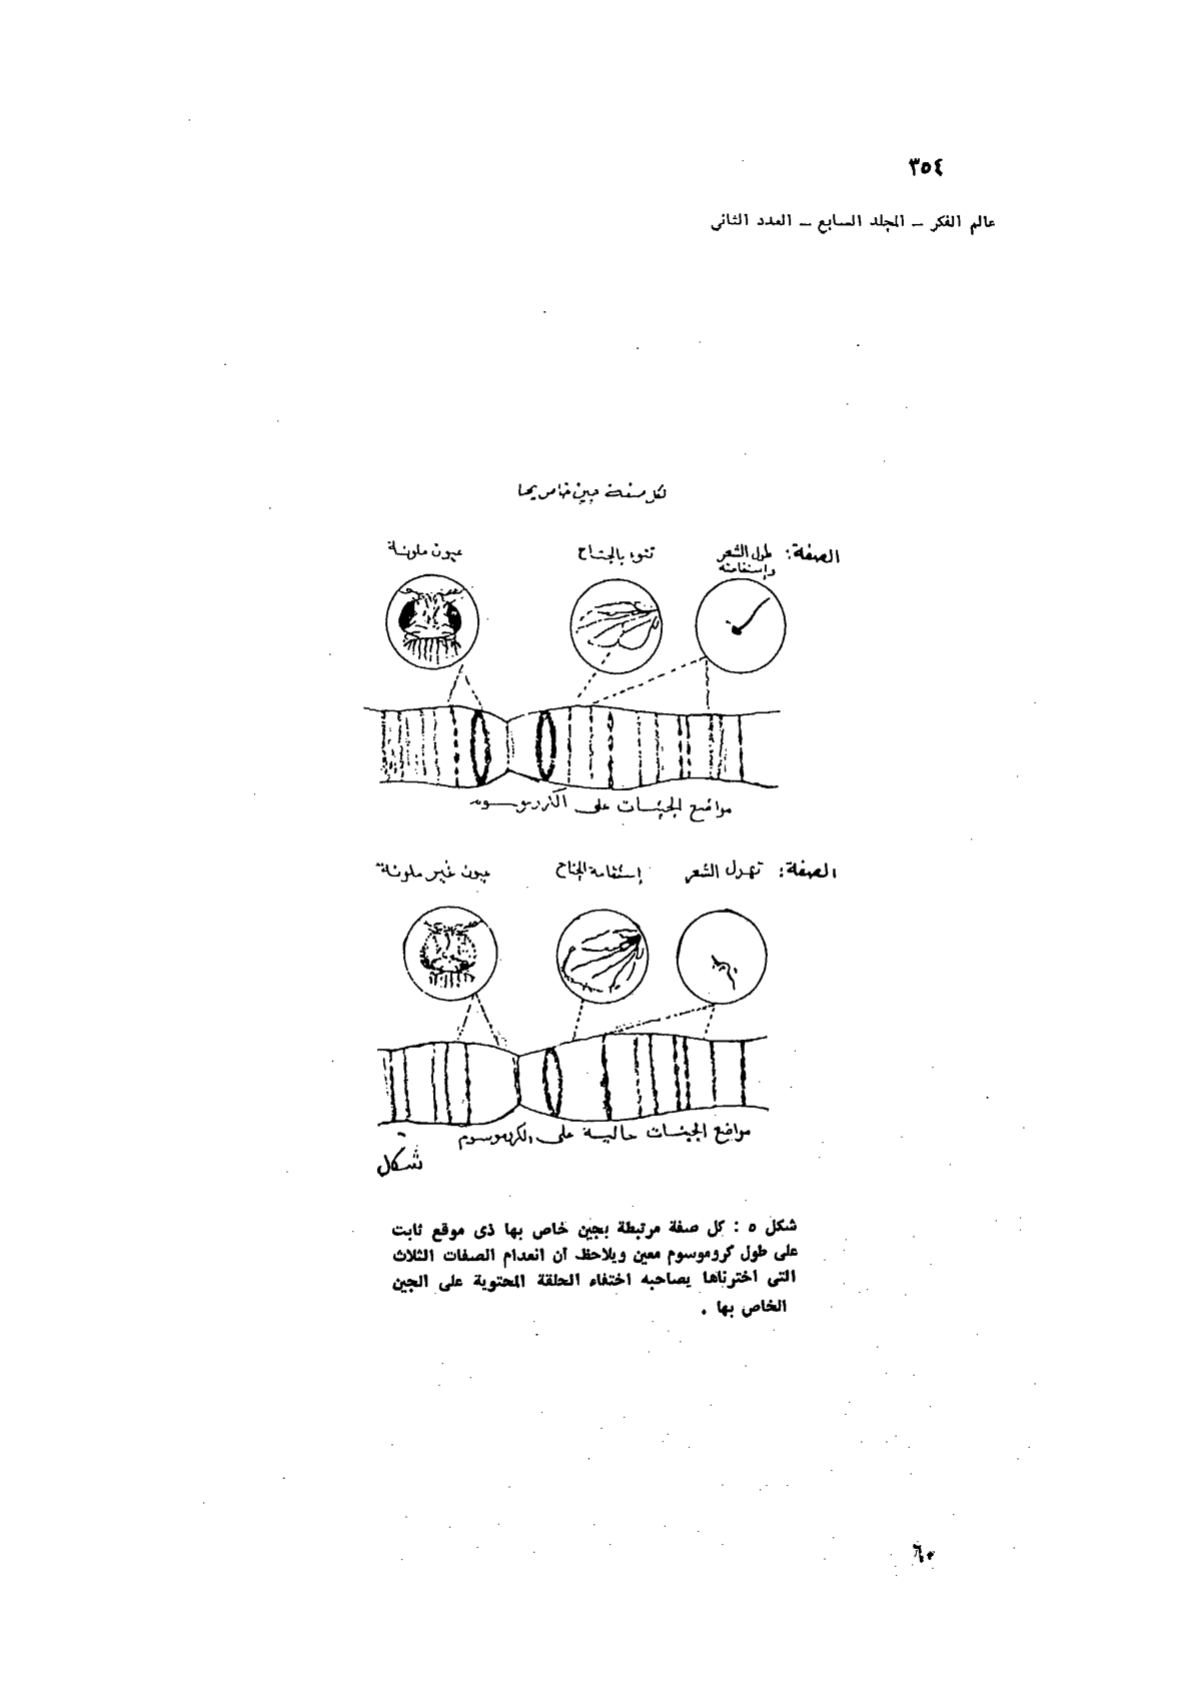 ٣٥٤
عالم الفكر ــ المجلد السابع ــ العدد الثاني
لكل صفة جين خاص بها
الصفة: طول الشعر واستقامته
نتوء بالجناح
عيون ملونة
مواضع الجينات على الكروموسوم
الصفة: تهدل الشعر
إستقامة الجناح
عيون غير ملونة
مواضع الجينات خالية على الكروموسوم
شكل
شكل ٥ : كل صفة مرتبطة بجين خاص بها ذى موقع ثابت
على طول كروموسوم معين ويلاحظ أن انعدام الصفات الثلاث
التى اخترناها يصاحبه اختفاء الحلقة المحتوية على الجين
الخاص بها .